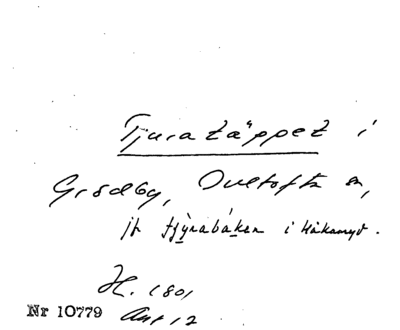 Tjuratäppet i
Grödby, Ovetofta sn,
jfr tjỳrabáken i Håkanryd.
H. 1801
Nr 10779 Akt 12